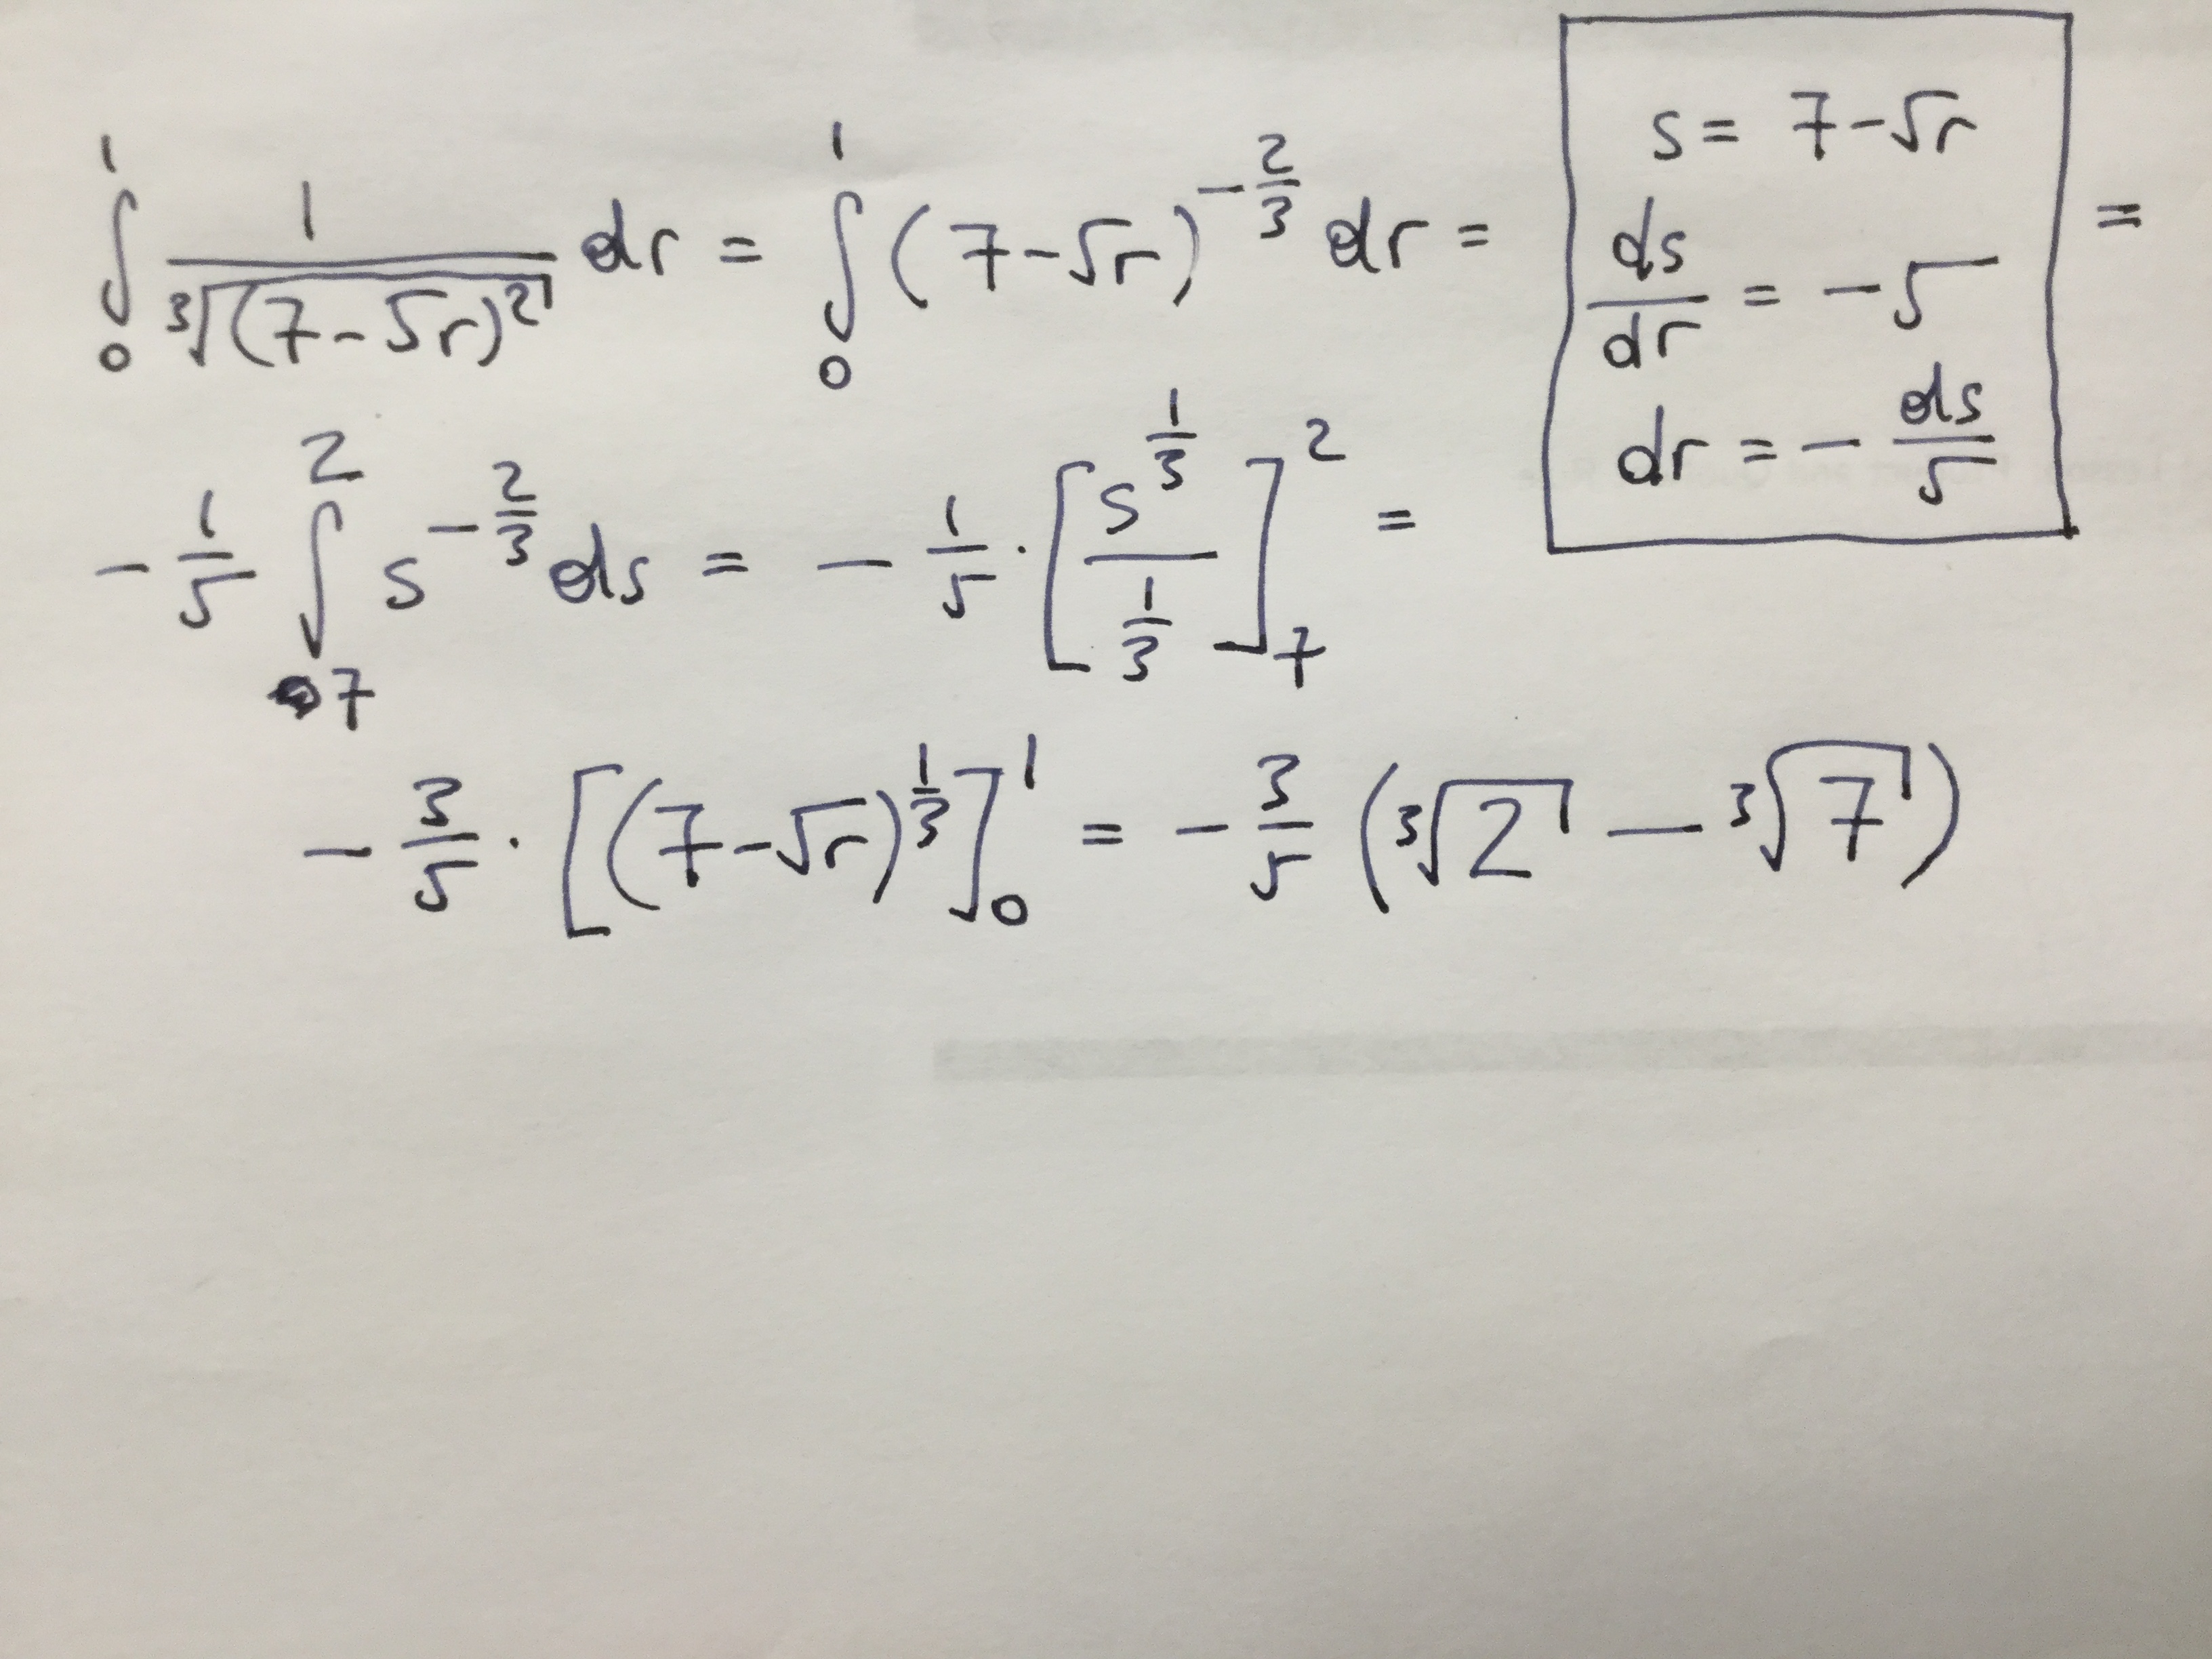 ∫₀¹ 1/∛((7-5r)²) dr = ∫₀¹ (7-5r)^(-2/3) dr = [s = 7-5r
ds/dr = -5
dr = -ds/5] =
-1/5 ∫₇² s^(-2/3) ds = -1/5 · [s^(1/3)/(1/3)]₇² =
-3/5 · [(7-5r)^(1/3)]₀¹ = -3/5 (∛2 - ∛7)